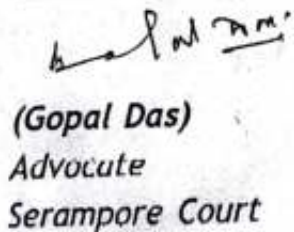 (Gopal Das)
Advocute
Serampore Court